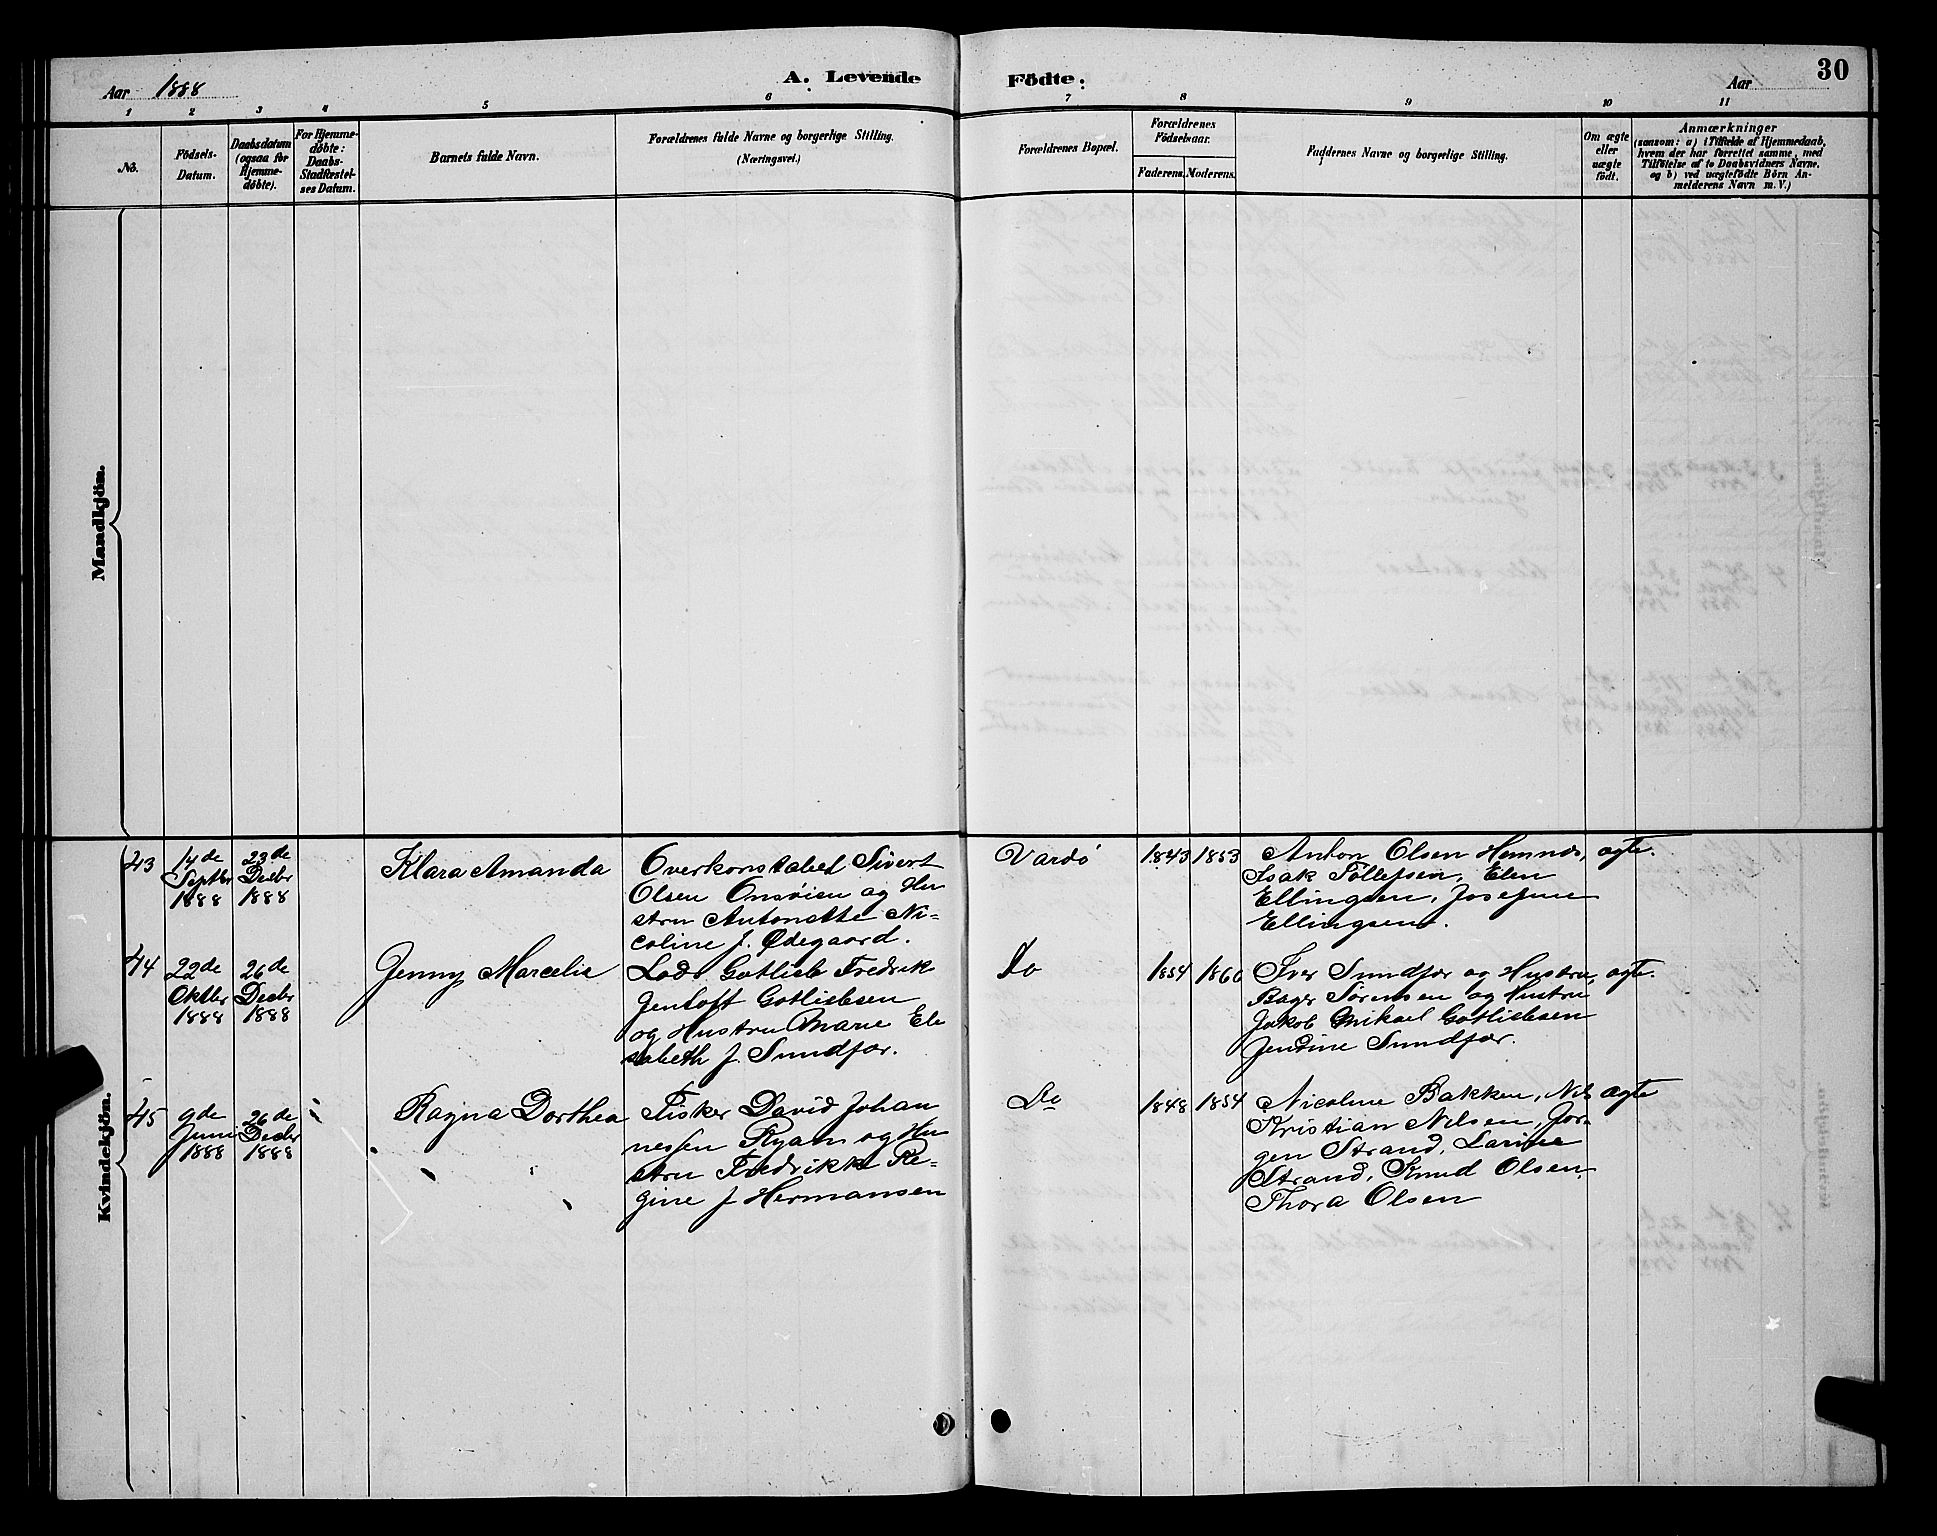 Aar 1888
A. Levende
Födte:
Aar
30
1 2 3 4 5 6 7 8 9 10 11
No.
Födsels-
Datum.
Daabsdatum
(ogsaa for
Hjemme-
döbte).
For Hjemme-
döbte:
Daabs-
Stadfæstel-
ses Datum.
Barnets fulde Navn.
Forældrenes fulde Navne og borgerlige Stilling.
(Næringsvei.)
Forældrenes Bopæl.
Forældrenes
Födselsaar.
Faderens. Moderens.
Faddernes Navne og borgerlige Stilling.
Om ægte
eller
uægte
födt.
Anmærkninger
(saasom: a) i Tilfælde af Hjemmedaab,
hvem der har forrettet samme, med
Tilföielse af to Daabsvidners Navne.
og b) ved uægtefödte Börn An-
melderens Navn m. V.)
Mandkjön.
Kvindekjön.
43
14de
Septbr
1888
23de
Decbr
1888
Klara Amanda
Overkonstabel Sivert
Olsen Omsöien og Hu
stru Antonette Ni-
coline f. Ødegaard.
Vardö
1843 1853
Anton Olsen Hemnes,
Isak Tollefsen, Elen
Ellingsen, Josefine
Ellingsen.
ægte.
44
22de
Oktbr
1888
26de
Decbr
1888
Jenny Marcelie
Lods Gotlieb Fredrik
Jentoft Gotliebsen
og Hustru Marie Ele
sabeth f. Sundfær.
Do
1854 1860
Iver Sundfær og Hustru,
Bager Sörensen og Hustru
Jakob Mikael Gotliebsen
Jendine Sundfær.
ægte.
45
9de
Juni
1888
26de
Decbr
1888
Ragna Dorthea
Fisker David Johan
nessen Ryan og Hu
stru Fredrikke Re-
gine f Hermansen
Do
1848 1854
Nicoline Bakken, Nils
Kristian Nilsen, Jör-
gen Strand, Larine
Strand, Knud Olsen,
Thora Olsen
ægte